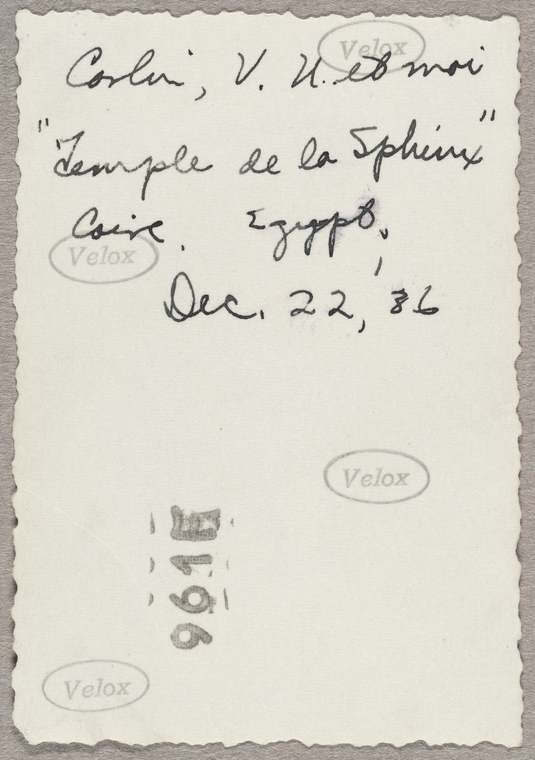 Velox
Corlin, V. U. et moi
"Temple de la Sphinx"
Caire. Egyppt,
Velox
Dec. 22, 36
Velox
961E
Velox